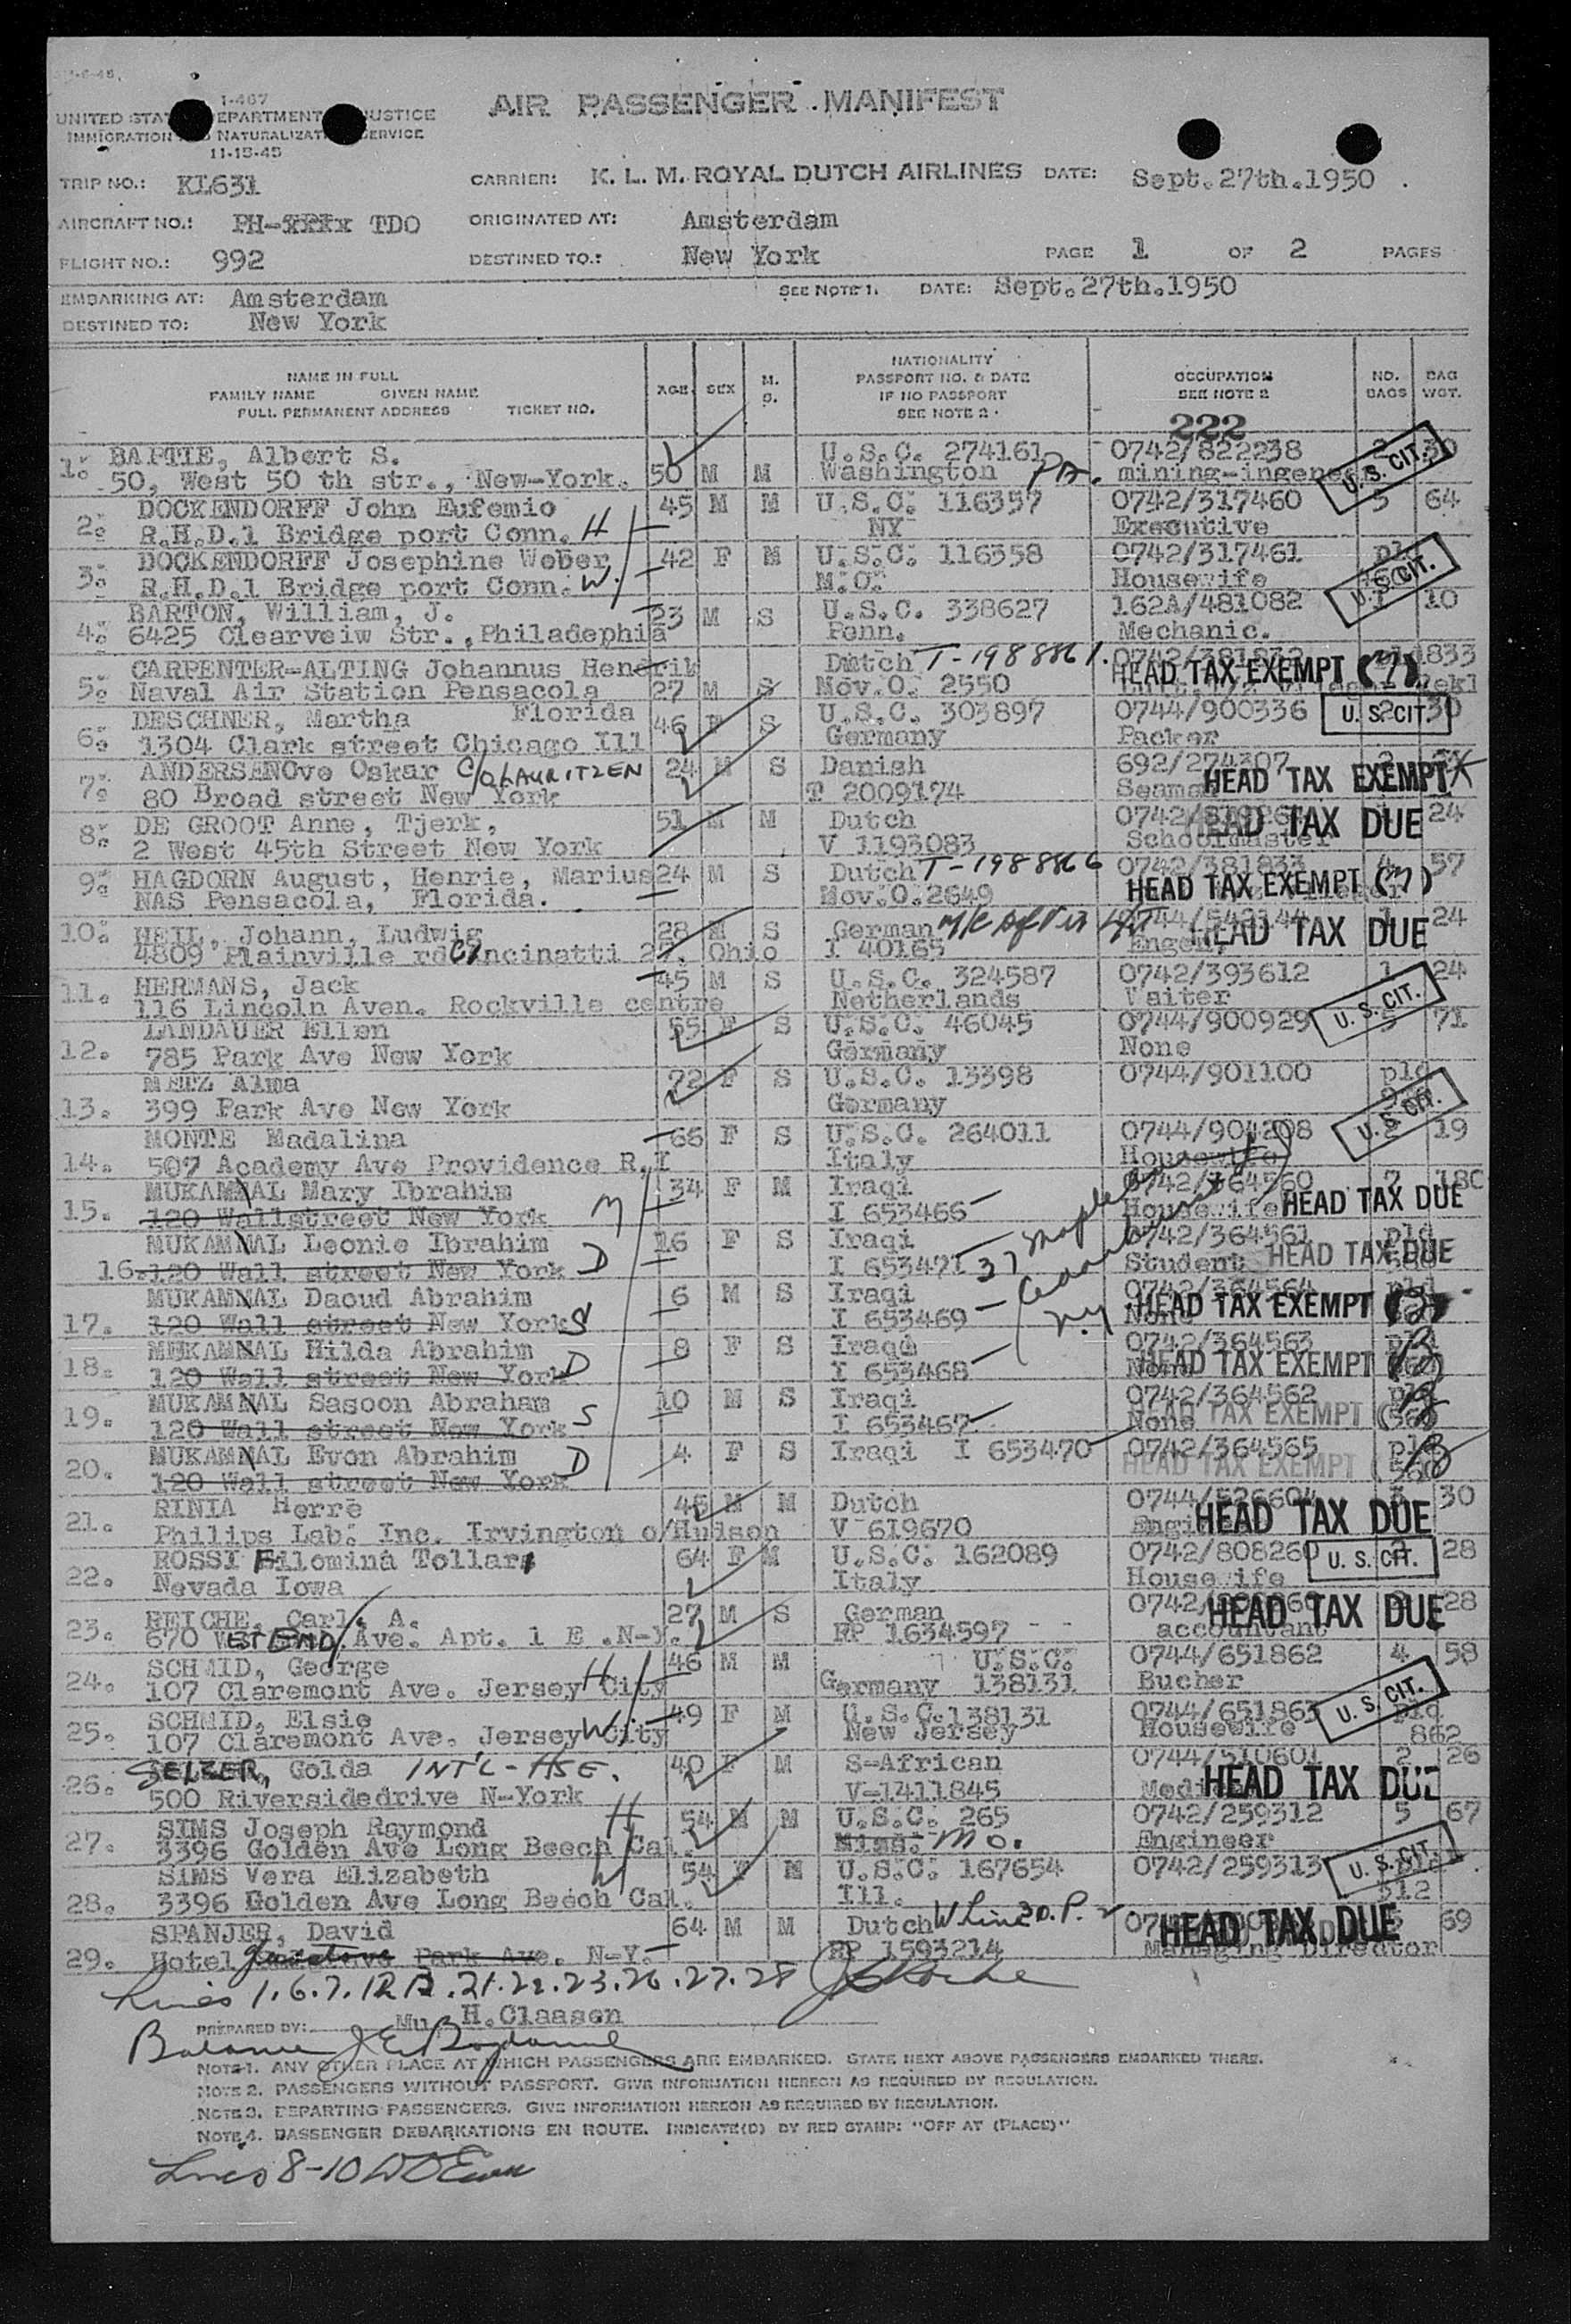 I-467
UNITED STATES DEPARTMENT OF JUSTICE
IMMIGRATION AND NATURALIZATION SERVICE
11-15-45
AIR PASSENGER MANIFEST
TRIP NO.: KL631 CARRIER: K. L. M. ROYAL DUTCH AIRLINES DATE: Sept.27th.1950.
AIRCRAFT NO.: PH- TDO ORIGINATED AT: Amsterdam
FLIGHT NO.: 992 DESTINED TO.: New York PAGE 1 OF 2 PAGES
EMBARKING AT: Amsterdam SEE NOTE 1. DATE: Sept.27th.1950
DESTINED TO: New York
NAME IN FULL
FAMILY NAME GIVEN NAME
FULL PERMANENT ADDRESS TICKET NO.
AGE SEX M. S.
NATIONALITY
PASSPORT NO. & DATE
IF NO PASSPORT
SEE NOTE 2.
OCCUPATION
SEE NOTE 2
NO. BAGS
BAG WGT.
222
1. BAPTIE, Albert S. 50 M M U.S.C. 274161 0742/822238 2 30
50, West 50 th str., New-York. Washington PA. mining- U.S. CIT.
2. DOCKENDORFF John Eufemio 45 M M U.S.C. 116357 0742/317460 5 64
R.H.D.1 Bridge port Conn. H NY Executive
3. DOCKENDORFF Josephine Weber 42 F M U.S.C. 116358 0742/317461 pld
R.H.D.1 Bridge port Conn. W. M.O. Housewife U.S. CIT.
4. BARTON, William, J. 23 M S U.S.C. 338627 162A/481082 1 10
6425 Clearveiw Str., Philadephia Penn. Mechanic.
5. CARPENTER-ALTING Johannus Hendrik Dutch T-198886 1. 0742/381832 833
Naval Air Station Pensacola 27 M S Mov.O. 2550 HEAD TAX EXEMPT (7)
Florida
6. DESCHNER, Martha 46 F S U.S.C. 303897 0744/900336 2 30
1304 Clark street Chicago Ill Germany Packer U. S. CIT.
7. ANDERSENOve Oskar C/O LAURITZEN 24 M S Danish 692/274307
80 Broad street New York T 2009174 Seaman HEAD TAX EXEMPT
8. DE GROOT Anne, Tjerk, 51 M M Dutch 24
2 West 45th Street New York V 1193083 Schoolmaster HEAD TAX DUE
9. HAGDORN August, Henrie, Marius 24 M S Dutch T-198886 6 0742/381833 4 57
NAS Pensacola, Florida. Mov.O.2649 HEAD TAX EXEMPT (7)
10. HEIL, Johann, Ludwig 28 M S German 24
4809 Plainville rd Cincinatti 27. Ohio I 40165 HEAD TAX DUE
11. HERMANS, Jack 45 M S U.S.C. 324587 0742/393612 1 24
116 Lincoln Aven. Rockville centre Netherlands Waiter U. S. CIT.
12. LANDAUER Ellen 65 F S U.S.C. 46045 0744/900929 5 71
785 Park Ave New York Germany None
13. METZ Alma 72 F S U.S.C. 13398 0744/901100 pld
399 Park Ave New York Germany U.S. CIT.
14. MONTE Madalina 66 F S U.S.C. 264011 0744/904208 2 19
507 Academy Ave Providence R.I Italy Housewife
15. MUKAMNAL Mary Ibrahim M 34 F M Iraqi 0742/364560 7 180
120 Wallstreet New York I 653466 Housewife HEAD TAX DUE
16. MUKAMNAL Leonie Ibrahim 16 F S Iraqi 0742/364561 pld
120 Wall street New York D I 653471 37 Maple Student HEAD TAX DUE
17. MUKAMNAL Daoud Abrahim 6 M S Iraqi 0742/364564 pld
120 Wall street New York S I 653469 N.Y None HEAD TAX EXEMPT
18. MUKAMNAL Hilda Abrahim 8 F S Iraqi 0742/364563 pld
120 Wall street New York D I 653468 None HEAD TAX EXEMPT
19. MUKAMNAL Sasoon Abraham 10 M S Iraqi 0742/364562 pld
120 Wall street New York S I 653467 None HEAD TAX EXEMPT 560
20. MUKAMNAL Evon Abrahim 4 F S Iraqi I 653470 0742/364565 pld
120 Wall street New York D HEAD TAX EXEMPT 560
21. RINIA Herre 45 M M Dutch 0744/526604 3 30
Philips Lab. Inc. Irvington o/Hudson V 619670 HEAD TAX DUE
22. ROSSI Filomina Tollari 64 F M U.S.C. 162089 0742/808260 28
Nevada Iowa Italy Housewife U. S. CIT.
23. REICHE, Carl. A. 27 M S German 28
670 WEST END Ave. Apt. 1 E .N-Y. RP 1634597 accountant HEAD TAX DUE
24. SCHMID, George 46 M M U.S.C. 0744/651862 4 58
107 Claremont Ave. Jersey City H Germany 138131 Bucher
25. SCHMID, Elsie 49 F M U.S.C.138131 0744/651863 pld
107 Claremont Ave. Jersey City W New Jersey Housewife 862 U. S. CIT.
26. SELZER, Golda INT'L-HSE. 40 F M S-African 0744/510601 2 26
500 Riversidedrive N-York V-1411845 HEAD TAX DUE
27. SIMS Joseph Raymond H 54 M M U.S.C. 265 0742/259312 5 67
3396 Golden Ave Long Beech Cal. Miss. Mo. Engineer
28. SIMS Vera Elizabeth W 54 F M U.S.C. 167654 0742/259313 pld
3396 Golden Ave Long Beech Cal. Ill. 312 U. S. CIT.
29. SPANJER, David 64 M M Dutch 69
Hotel Park Ave. N-Y. RP 1593214 Managing Director HEAD TAX DUE
Lines 1.6.7.12.13.21.22.23.26.27.28
PREPARED BY: H.Claasen
Balance
NOTE 1. ANY OTHER PLACE AT WHICH PASSENGERS ARE EMBARKED. STATE NEXT ABOVE PASSENGERS EMBARKED THERE.
NOTE 2. PASSENGERS WITHOUT PASSPORT. GIVE INFORMATION HEREON AS REQUIRED BY REGULATION.
NOTE 3. DEPARTING PASSENGERS. GIVE INFORMATION HEREON AS REQUIRED BY REGULATION.
NOTE 4. PASSENGER DEBARKATIONS EN ROUTE. INDICATE(D) BY RED STAMP: "OFF AT (PLACE)"
Lines 8-10